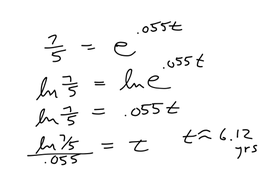 7/5 = e^.055t
ln 7/5 = ln e^.055t
ln 7/5 = .055t
ln 7/5 / .055 = t t ≈ 6.12 yrs